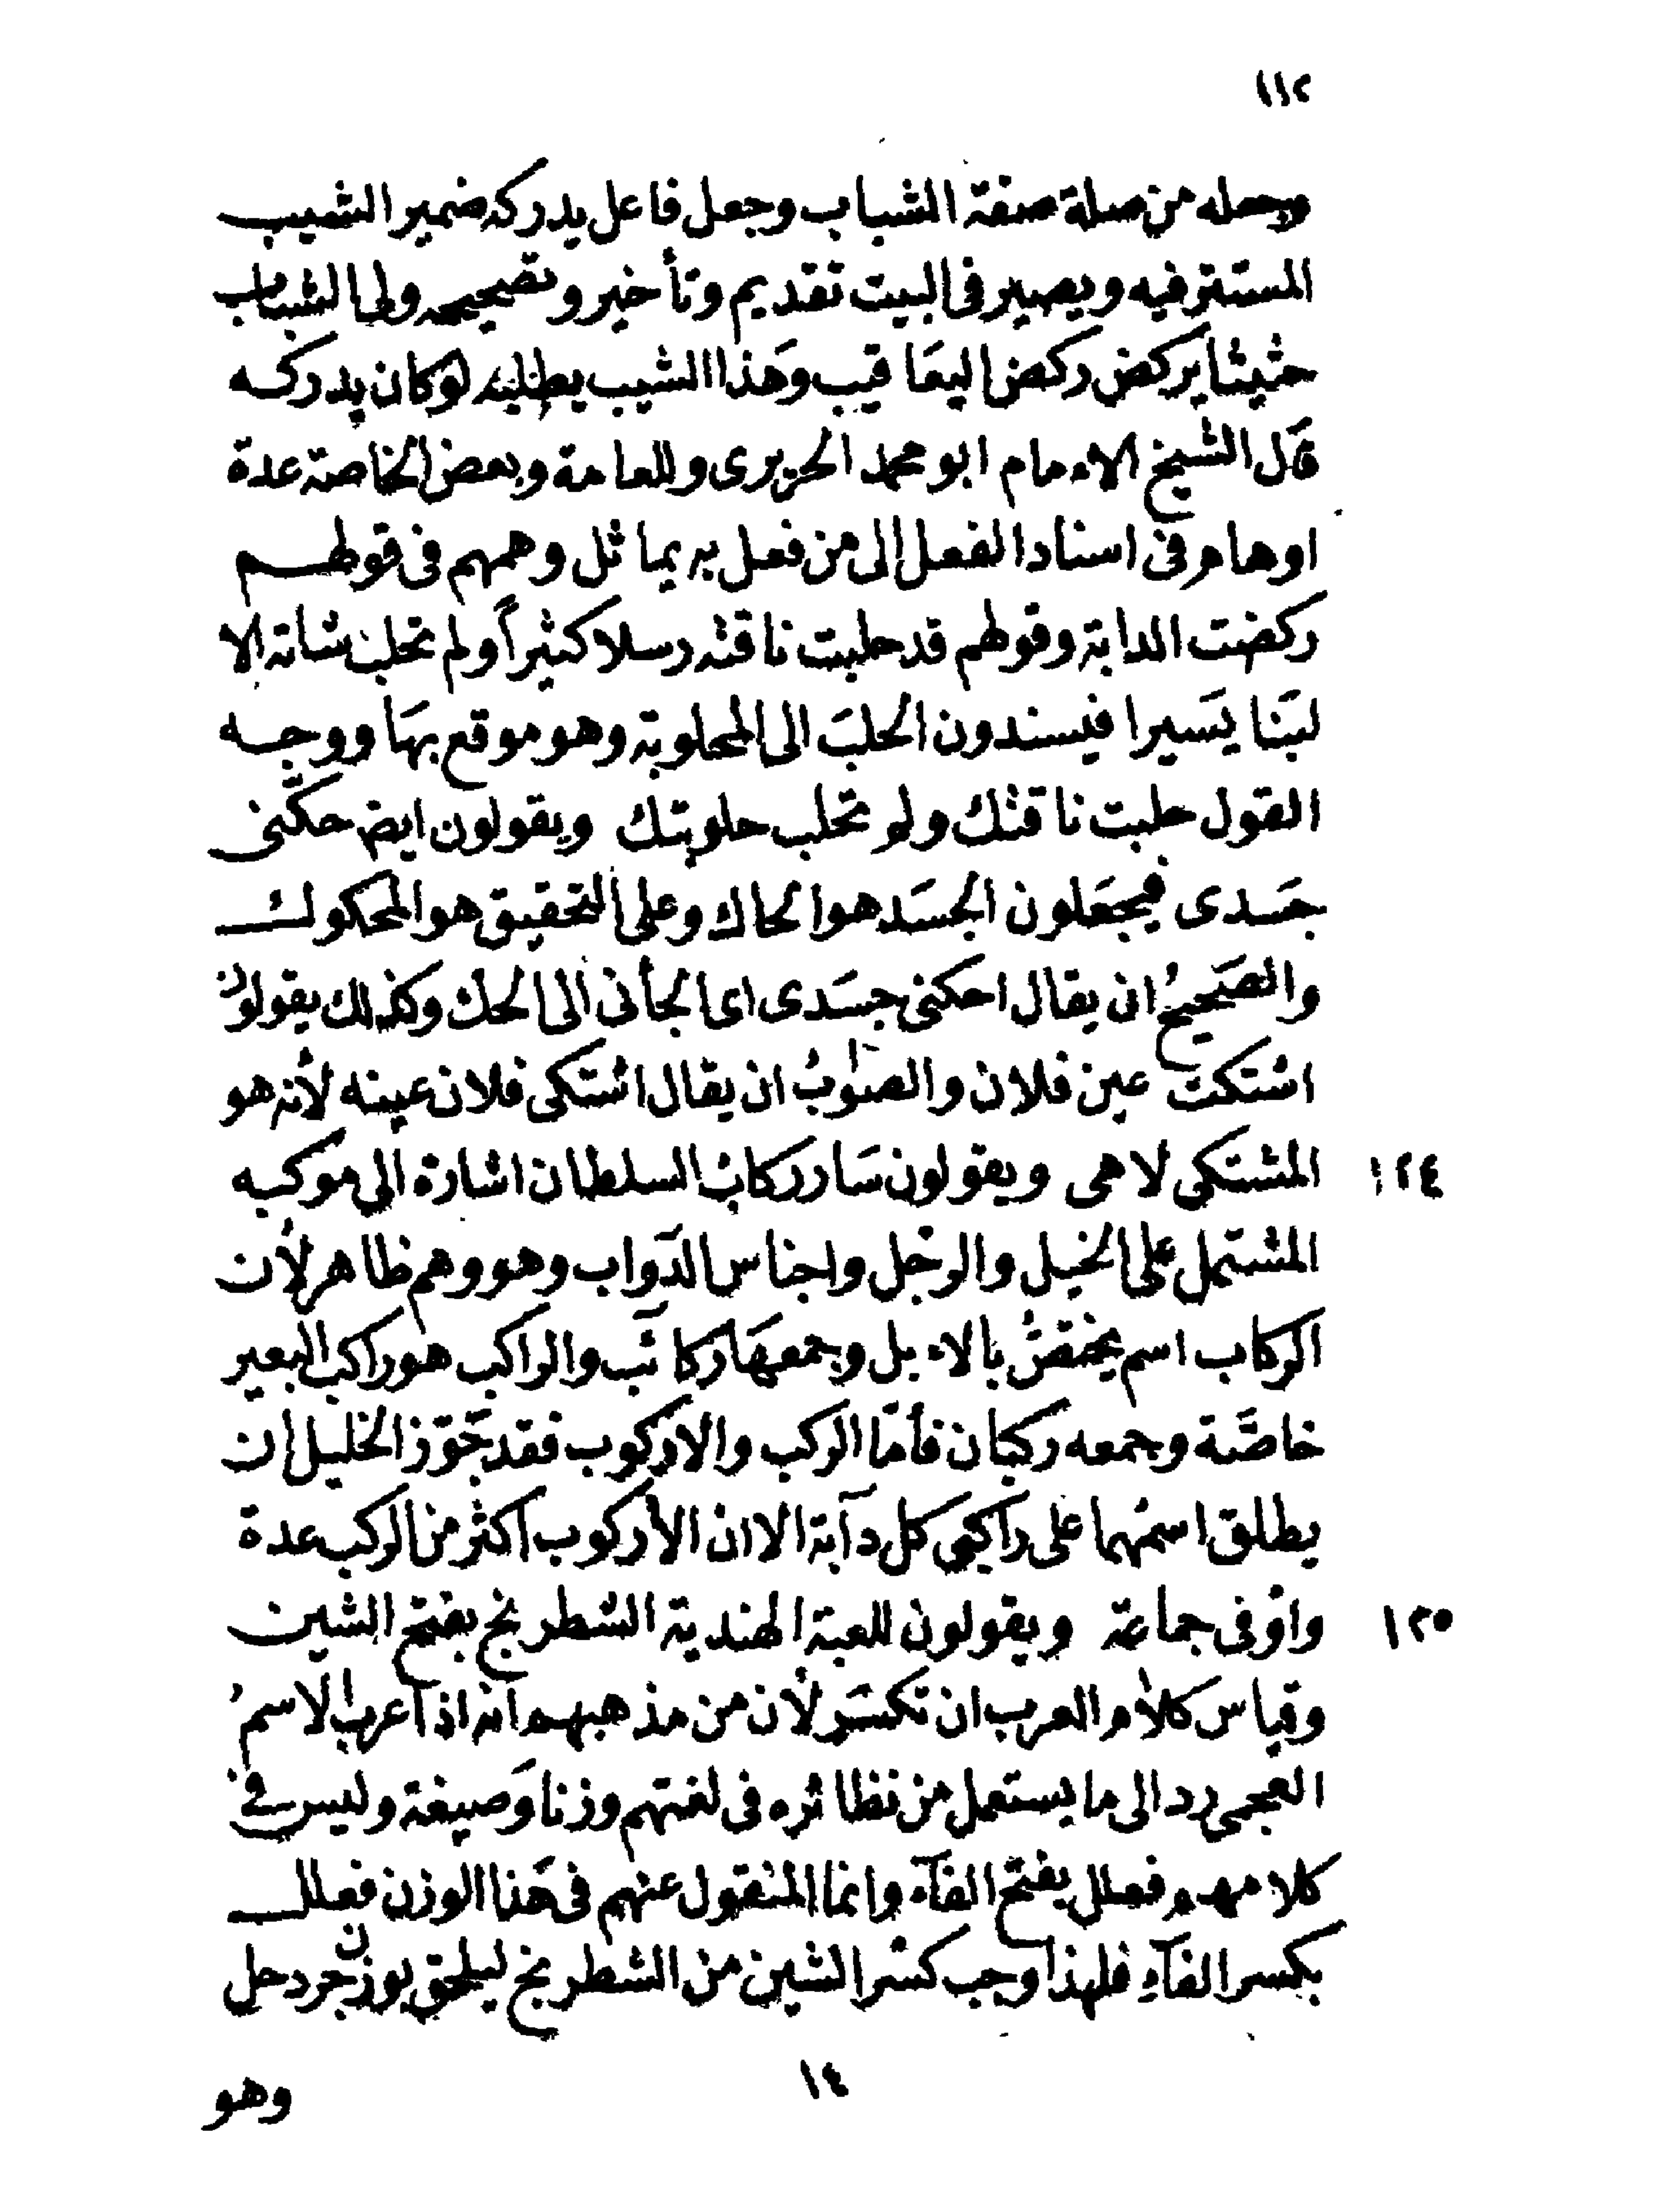 ١١٢
وجعله من صلة صفة الشباب وجعل فاعل يدركه ضمير الشيب
المستتر فيه ويصير فى البيت تقديم وتأخير وتصحيحه ولى الشباب
حثيثا يركض ركض اليعَاقيب وهَذا الشيب يطلبه لو كان يدركه
قال الشيخ الامام ابو محمد الحريرى وللعامة وبعض الخاصة عدة
اوهام فى اسناد الفعل الى من فعل به يماثل وهمهم فى قولهم
ركضت الدابة وقولهم قد حلبت ناقته رسلا كثيراً ولم تحلب شاته الا
لبَنا يَسيرا فيسندون الحلبَ الى المحلوبة وهو موقع بهَا ووجه
القول حلبت ناقتك ولم تحلب حلوبتك ويقولون ايض حكّنى
جَسدى فيجعَلون الجسَد هو الحاك وعلى التحقيق هو المحكوك
والصَحيحُ ان يقال احكنى جسَدى اى الجأنى الى الحك وكذلك يقولون
اشتكت عين فلان والصوابُ ان يقال اشتكى فلان عينه لأنه هو
١٢٤ المشتكى لا هى ويقولون سَار ركابُ السلطان اشارة الى موكبه
المشتمل على الخيل والرجل واجناس الدّواب وهو وهم ظاهر لأن
الركاب اسم يختصُ بالابل وجمعهَا ركائب والراكب هو راكب البعير
خاصَّة وجمعه ركبان فأمّا الركب والاركوب فقد جَوّز الخليل ان
يطلق اسمُهما على راكبى كل دآبة الا ان الأركوب اكثر من الركب عدة
١٢٥ واوفى جماعة ويقولون للعبة الهندية الشطرنج بفتح الشين
وقياس كلام العرب ان تكسَر لأن من مذهبهم انه اذا اعرب الاسمُ
العجمى رد الى ما يستعمل من نظائره فى لغتهم وزنا وَصيغة وليس فى
كلامهم فعلل بفتح الفآء وانما المنقول عنهم فى هَذا الوزن فعلل
بكسر الفآءِ فلهذا وجب كسْر الشين من الشطرنج ليلحق بوزن جردحل
١٤
وهو